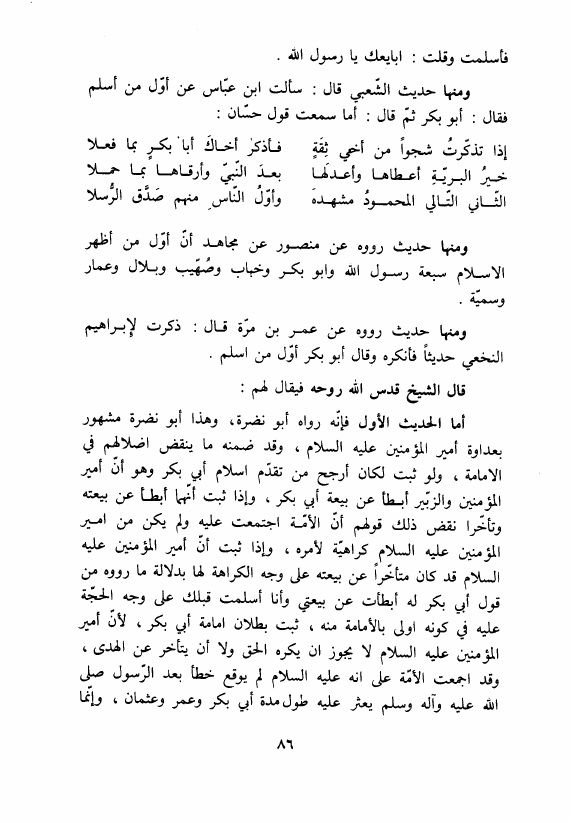 فأسلمت وقلت : ابايعك يا رسول الله .
ومنها حديث الشّعبي قال : سألت ابن عبّاس عن أوّل من أسلم
فقال : أبو بكر ثمّ قال : أما سمعت قول حسّان :
إذا تذكّرتُ شجواً من أخي ثِقَةٍ فـأذكرْ أخـاكَ أبا بكـرٍ بما فعـلا
خـيرُ البـريّـةِ أعـطاهـا وأعـدلهَـا بعـدَ النّبيّ وأرقـاهـا بمـا حمـلا
الثّـاني التّـالي المحمـودُ مشهـدهَ وأوّلُ النّاسِ منهم صَدَّق الرُّسلا
ومنها حديث رووه عن منصـور عن مجاهـد أنّ أوّل من أظهر
الاسـلام سبعة رسـول الله وابو بكـر وخباب وصُهَيب وبـلال وعمار
وسميّة .
ومنها حديث رووه عن عمـر بن مرّة قـال : ذكرت لإبـراهيم
النخعي حديثاً فأنكره وقال أبو بكر أوّل من اسلم .
قال الشيخ قدس الله روحه فيقال لهم :
أما الحديث الأول فإنّه رواه أبو نضرة، وهذا أبو نضرة مشهور
بعداوة أمير المؤمنين عليه السلام ، وقد ضمنه ما ينقض اضلالهم في
الامامة ، ولو ثبت لكان أرجح من تقدّم اسلام أبي بكر وهو أنّ أمير
المؤمنين والزبّير أبـطأ عن بيعة أبي بكر ، وإذا ثبت أنّهما أبطـأ عن بيعته
وتأخّرا نقض ذلك قولهم أنّ الأمّـة اجتمعت عليه ولم يكن من امـير
المؤمنين عليه السلام كراهيّة لأمره ، وإذا ثبت أنّ أمير المؤمنين عليه
السلام قد كان متأخّراً عن بيعته على وجه الكراهة لها بدلالة ما رووه من
قول أبي بكر له أبطأت عن بيعتي وأنا أسلمت قبلك على وجه الحجّة
عليه في كونه اولى بالأمامة منه ، ثبت بطلان امامة أبي بكر ، لأنّ أمير
المؤمنين عليه السلام لا يجوز ان يكره الحق ولا أن يتأخر عن الهدى ،
وقد اجمعت الأمّة على انه عليه السلام لم يوقع خطأ بعد الرّسول صلى
الله عليه وآله وسلم يعثر عليه طول مدة أبي بكر وعمر وعثمان ، وإنّما
٨٦